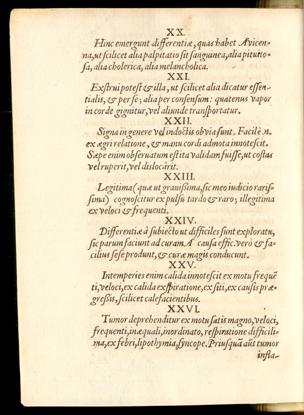 XX.
Hinc emergunt differentiæ, quas habet Avicen-
na, ut scilicet alia palpitatio sit sanguinea, alia pituito-
sa, alia cholerica, alia melancholica.
XXI.
Exstrui potest & illa, ut scilicet alia dicatur essen-
tialis, & per se; alia per consensum: quatenus vapor
in corde gignitur, vel aliunde transportatur.
XXII.
Signa in genere vel indoctis obvia sunt. Facilè n.
ex ægri relatione, & manu cordi admota innotescit.
Sæpe enim observatum est ita validam fuisse, ut costas
vel ruperit, vel dislocârit.
XXIII.
Legitima (quæ ut gravissima, sic meo iudicio raris-
sima) cognoscitur ex pulsu tardo & raro; illegitima
ex veloci & frequenti.
XXIV.
Differentiæ à subiecto ut difficiles sunt exploratu,
sic parum faciunt ad curam. A causa effic. verò & fa-
cilius sese produnt, & curæ magis conducunt.
XXV.
Intemperies enim calida innotescit ex motu frequē-
ti, veloci, ex calida exspiratione, ex siti, ex causis præ-
gressis, scilicet calefacientibus.
XXVI.
Tumor deprehenditur ex motu satis magno, veloci,
frequenti, inæquali, inordinato, respiratione difficili-
ma, ex febri, lipothymia, syncope. Priusquā aūt tumor
infla-